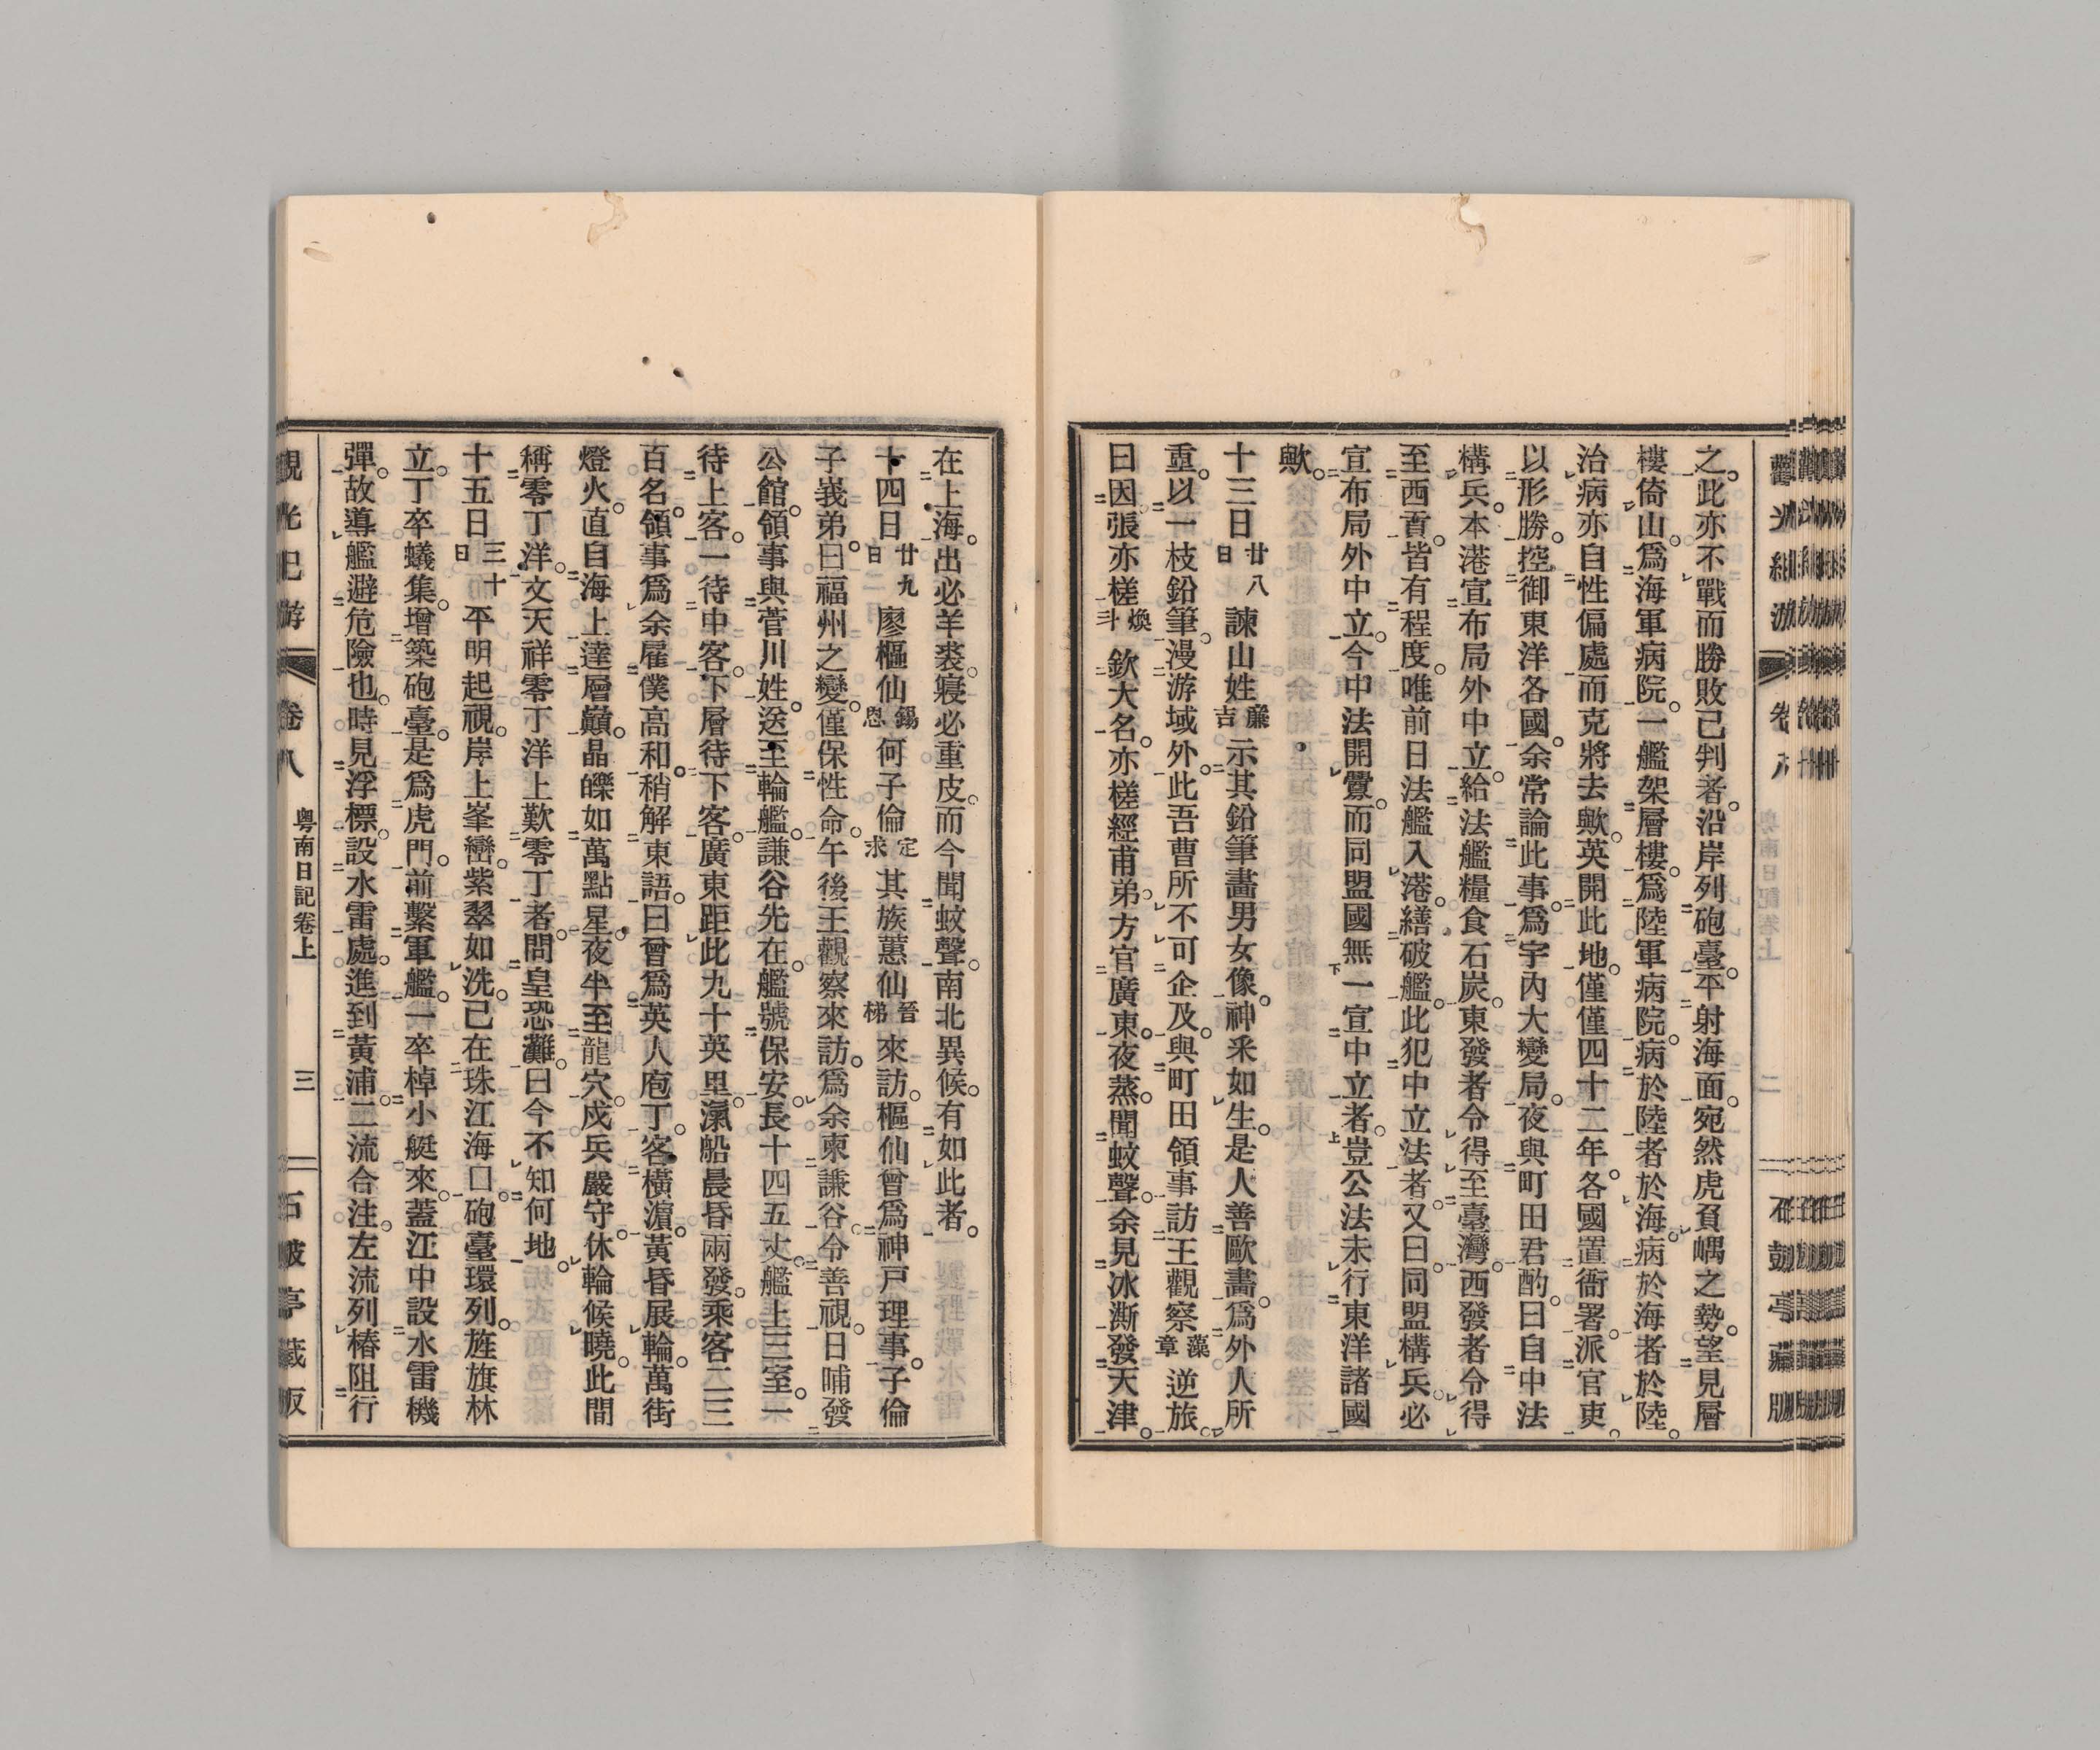 之。此亦不戰而勝敗已判者。沿岸列砲臺。平射海面。宛然虎負嵎之勢。望見層
樓倚山。爲海軍病院。一艦架層樓。爲陸軍病院。病於陸者於海。病於海者於陸。
治病亦自性偏處而克將去歟。英開此地。僅僅四十二年。各國置衙署。派官吏。
以形勝。控御東洋各國。余常論此事。爲宇內大變局。夜與町田君酌。曰自中法
構兵。本港宣布局外中立。給法艦糧食石炭。東發者令得至臺灣。西發者令得
至西貢。皆有程度。唯前日法艦入港。繕破艦。此犯中立法者。又曰。同盟構兵。必
宣布局外中立。今中法開釁。而同盟國無一宣中立者。豈公法未行東洋諸國
歟。
十三日廿八日諫山姓廉吉示其鉛筆畫男女像。神釆如生。是人善歐畫。爲外人所
重。以一枝鉛筆。漫游域外。此吾曹所不可企及。與町田領事訪王觀察藻章逆旅。
曰因張亦槎煥斗欽大名。亦槎經甫弟。方官廣東。夜蒸。聞蚊聲。余見冰澌發天津。
在上海。出必羊裘。寢必重皮。而今聞蚊聲。南北異候。有如此者。
十四日廿九日廖樞仙錫恩何子倫定求其族蕙仙晉梯來訪。樞仙曾爲神戶理事。子倫
子峩弟。曰福州之變。僅保性命。午後王觀察來訪。爲余柬謙谷。令善視。日晡發
公館。領事與菅川姓。送至輪艦。謙谷先在艦。號保安。長十四五丈。艦上三室。一
待上客。一待中客。下層待下客。廣東距此九十英里。瀛船晨昏兩發。乘客二三
百名。領事爲余雇僕高和。稍解東語。曰曾爲英人庖丁。客橫濱。黃昏展輪。萬街
燈火。直自海上達層巔。晶皪如萬點星。夜半至龍穴。戍兵嚴守。休輪候曉。此間
稱零丁洋。文天祥零丁洋上歎零丁者。問皇恐灘。曰今不知何地。
十五日三十日平明起視。岸上峯巒。紫翠如洗。已在珠江海口。砲臺環列。旌旗林
立。丁卒蟻集。增築砲臺。是爲虎門。前繫軍艦。一卒棹小艇來。蓋江中設水雷機
彈。故導艦避危險也。時見浮標。設水雷處。進到黃浦。二流合注。左流列樁阻行
觀光紀游 卷八 粤南日記卷上 三 石皷亭藏版